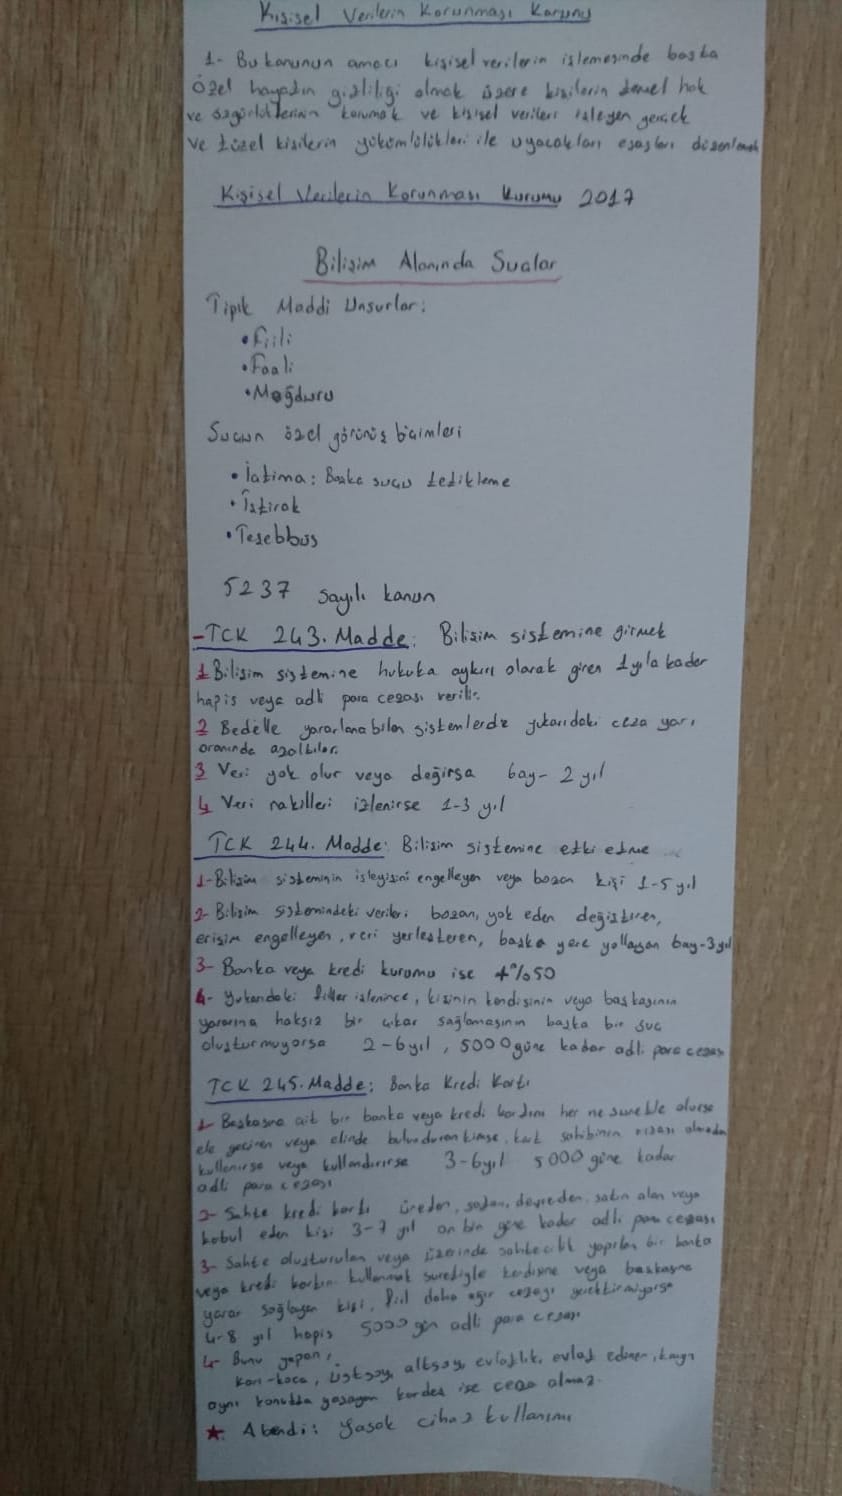 Kişisel Verilerin Korunması Kanunu
1- Bu kanunun amacı kişisel verilerin işlemesinde başta
özel hayatın gizliliği olmak üzere kişilerin temel hak
ve özgürlüklerinin korumak ve kişisel verileri işleyen gerçek
ve tüzel kişilerin yükümlülükleri ile uyacakları esasları düzenlemek
Kişisel Verilerin Korunması Kurumu 2017
Bilişim Alanında Suçlar
Tipik Maddi Unsurlar:
• Fiili
• Faali
• Mağduru
Suçun özel görünüş biçimleri
• İçtima: Başka suçu tetikleme
• İştirak
• Teşebbüs
5237 sayılı kanun
-TCK 243. Madde: Bilişim sistemine girmek
1 Bilişim sistemine hukuka aykırı olarak giren 1 yıla kadar
hapis veya adli para cezası verilir.
2 Bedelle yararlanabilen sistemlerde yukarıdaki ceza yarı
oranında azaltılır.
3 Veri yok olur veya değişirse 6ay- 2 yıl
4 Veri nakilleri izlenirse 1-3 yıl
TCK 244. Madde: Bilişim sistemine etki etme
1-Bilişim sisteminin işleyişini engelleyen veya bozan kişi 1-5 yıl
2- Bilişim sistemindeki verileri bozan, yok eden değiştiren,
erişim engelleyen, veri yerleştiren, başka yere yollayan 6ay-3yıl
3- Banka veya kredi kurumu ise +%50
4- Yukarıdaki fiiller işlenince, kişinin kendisinin veya başkasının
yararına haksız bir çıkar sağlamasının başka bir suç
oluşturmuyorsa 2-6yıl, 5000 güne kadar adli para cezası
TCK 245. Madde: Banka Kredi Kartı
1- Başkasına ait bir banka veya kredi kardını her ne suretle olursa
ele geçiren veya elinde bulunduran kimse, kart sahibinin rızası olmadan
kullanırsa veya kullandırırsa 3-6yıl 5000 güne kadar
adli para cezası
2- Sahte kredi kartı üreten, satan, devreden, satın alan veya
kabul eden kişi 3-7 yıl on bin güne kadar adli para cezası
3- Sahte oluşturulan veya üzerinde sahtecilik yapılan bir banka
veya kredi kartın kullanmak suretiyle kendisine veya başkasına
yarar sağlayan kişi, fiil daha ağır cezayı gerektirmiyorsa
4-8 yıl hapis 5000 gün adli para cezası
4- Bunu yapan,
Karı-koca, üstsoy, altsoy, evlatlık, evlat edinen,
aynı konutta yaşayan kardeş ise ceza almaz.
★ A bendi: Yasak cihaz kullanımı